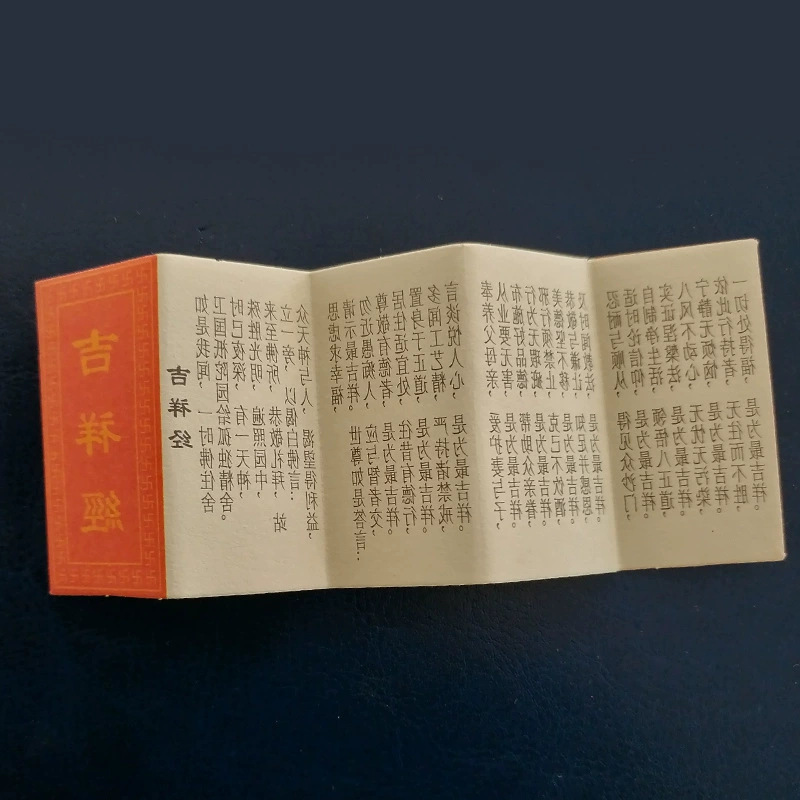 吉祥經
吉祥经
如是我闻，一时佛住舍
卫国祇陀园给孤独精舍。
时已夜深，有一天神，
殊胜光明，遍照园中，
来至佛所，恭敬礼拜，站
立一旁，以偈白佛言：
众天神与人，渴望得利益，
思虑求幸福，
请示最吉祥。世尊如是答言：
勿近愚痴人，应与智者交，
尊敬有德者，是为最吉祥。
居住适宜处，往昔有德行，
置身于正道，是为最吉祥。
多闻工艺精，严持诸禁戒，
言谈悦人心，是为最吉祥。
奉养父母亲，爱护妻与子，
从业要无害，是为最吉祥。
布施好品德，帮助众亲眷，
行为无瑕疵，是为最吉祥。
邪行须禁止，克己不饮酒，
美德坚不移，是为最吉祥。
恭敬与谦让，知足并感恩，
及时闻教法，是为最吉祥。
忍耐与顺从，得见众沙门，
适时论信仰，是为最吉祥。
自制净生活，领悟八正道，
实证涅槃法，是为最吉祥。
八风不动心，无忧无污染，
宁静无烦恼，是为最吉祥。
依此行持者，无往而不胜，
一切处得福，是为最吉祥。